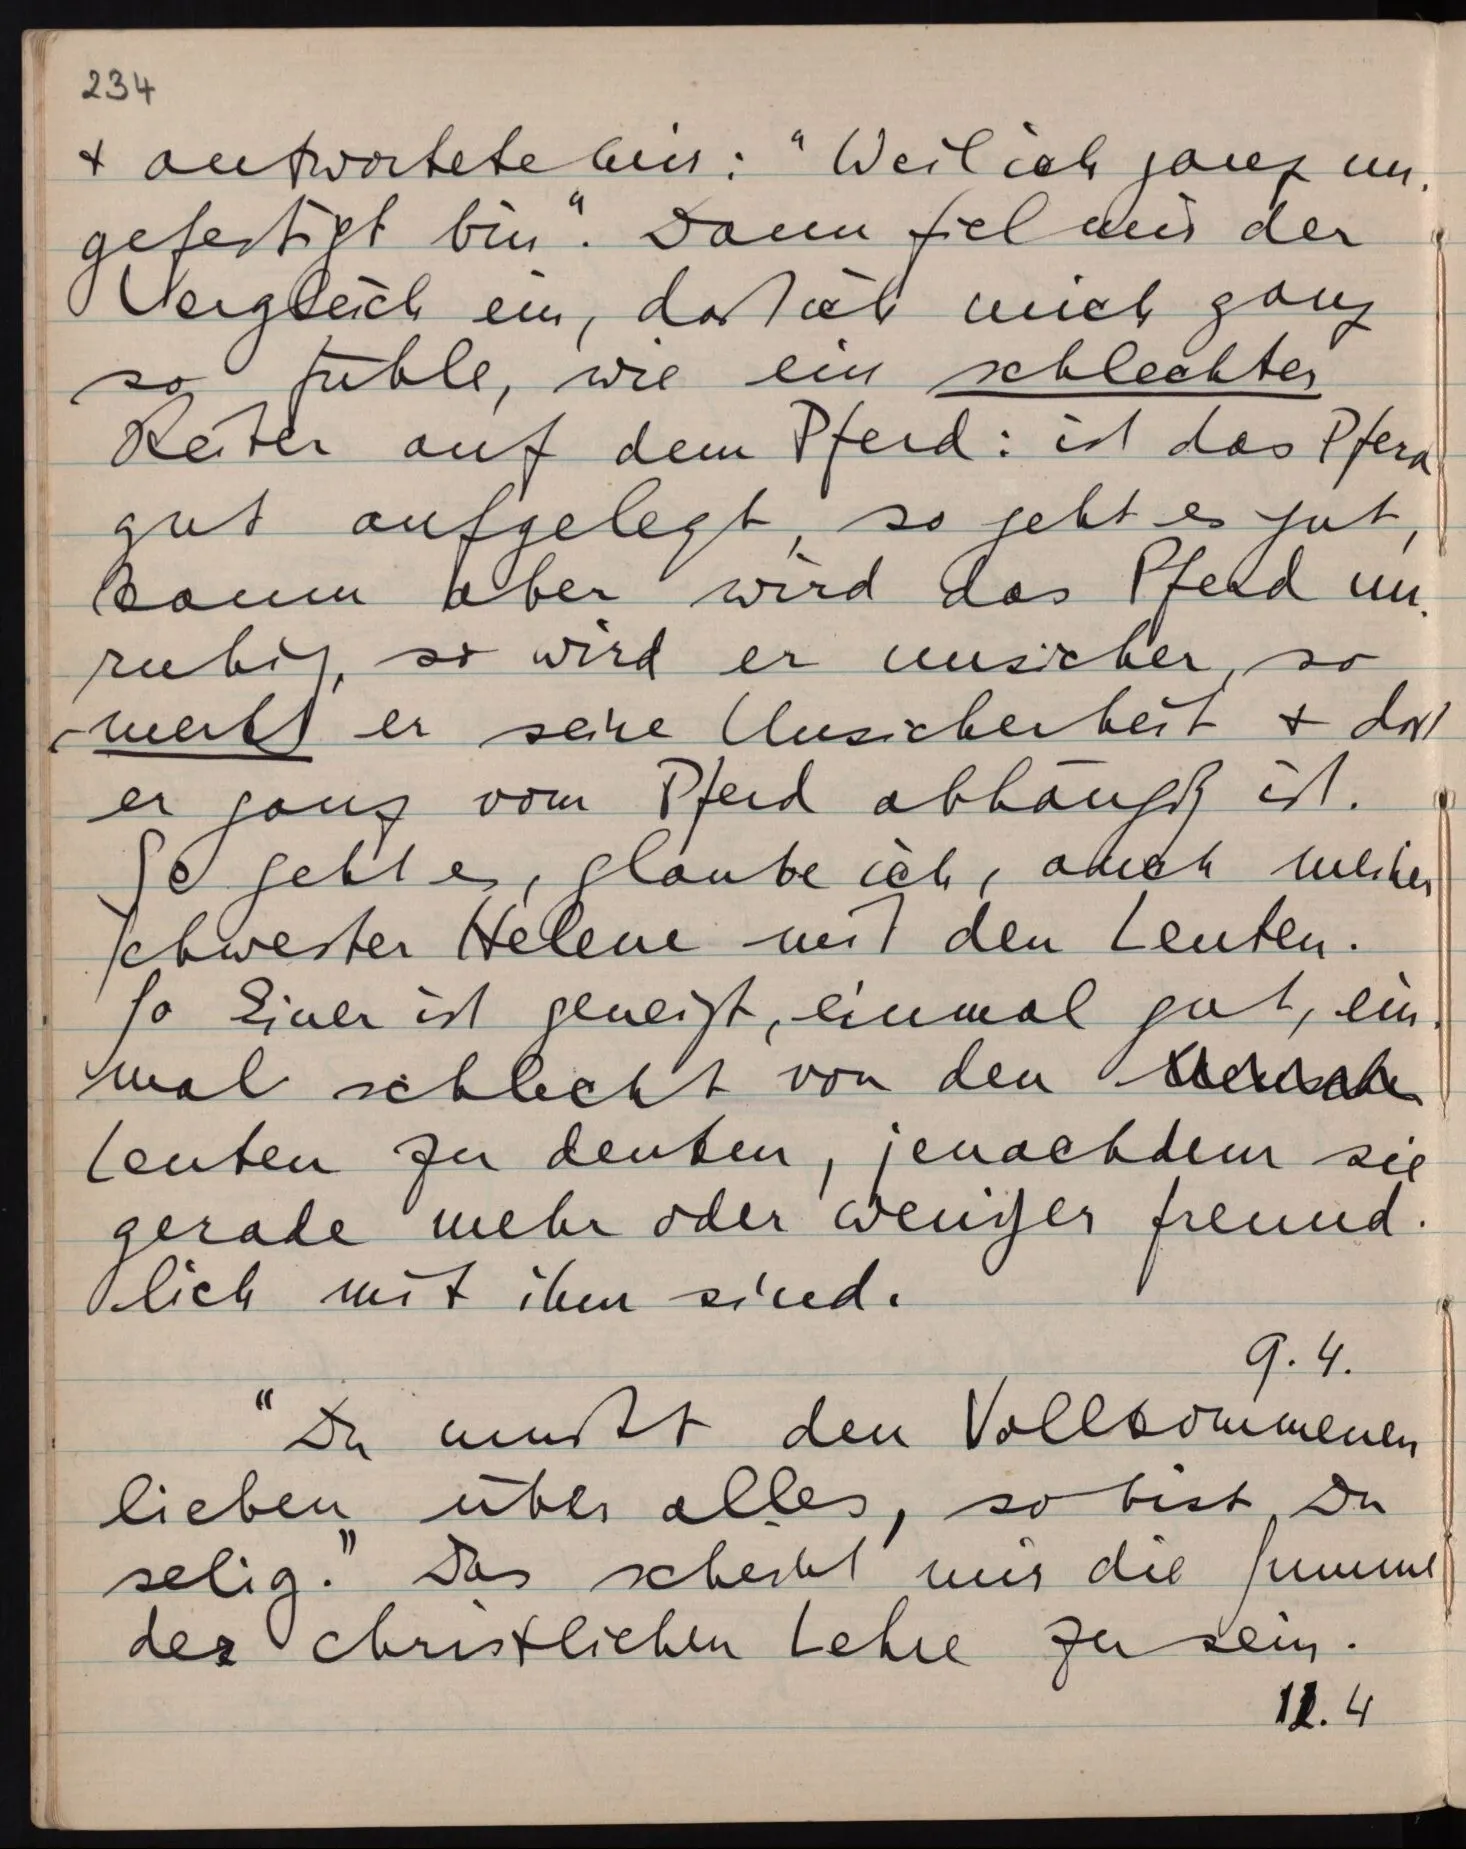 234
+ antwortete mir: "Weil ich ganz un-
gefestigt bin". Dann fiel mir der
Vergleich ein, daß ich mich ganz
so fühle, wie ein schlechter
Reiter auf dem Pferd: ist das Pferd
gut aufgelegt, so geht es gut,
kaum aber wird das Pferd un-
ruhig, so wird er unsicher, so
merkt er seine Unsicherheit + daß
er ganz vom Pferd abhängig ist.
So geht es, glaube ich, auch meiner
Schwester Helene mit den Leuten.
So Einer ist geneigt, einmal gut, ein-
mal schlecht von den
Leuten zu denken, jenachdem sie
gerade mehr oder weniger freund-
lich mit ihm sind.
9. 4.
"Du mußt den Vollkommenen
lieben über alles, so bist Du
selig." Das scheint mir die Summe
der christlichen Lehre zu sein.
12. 4